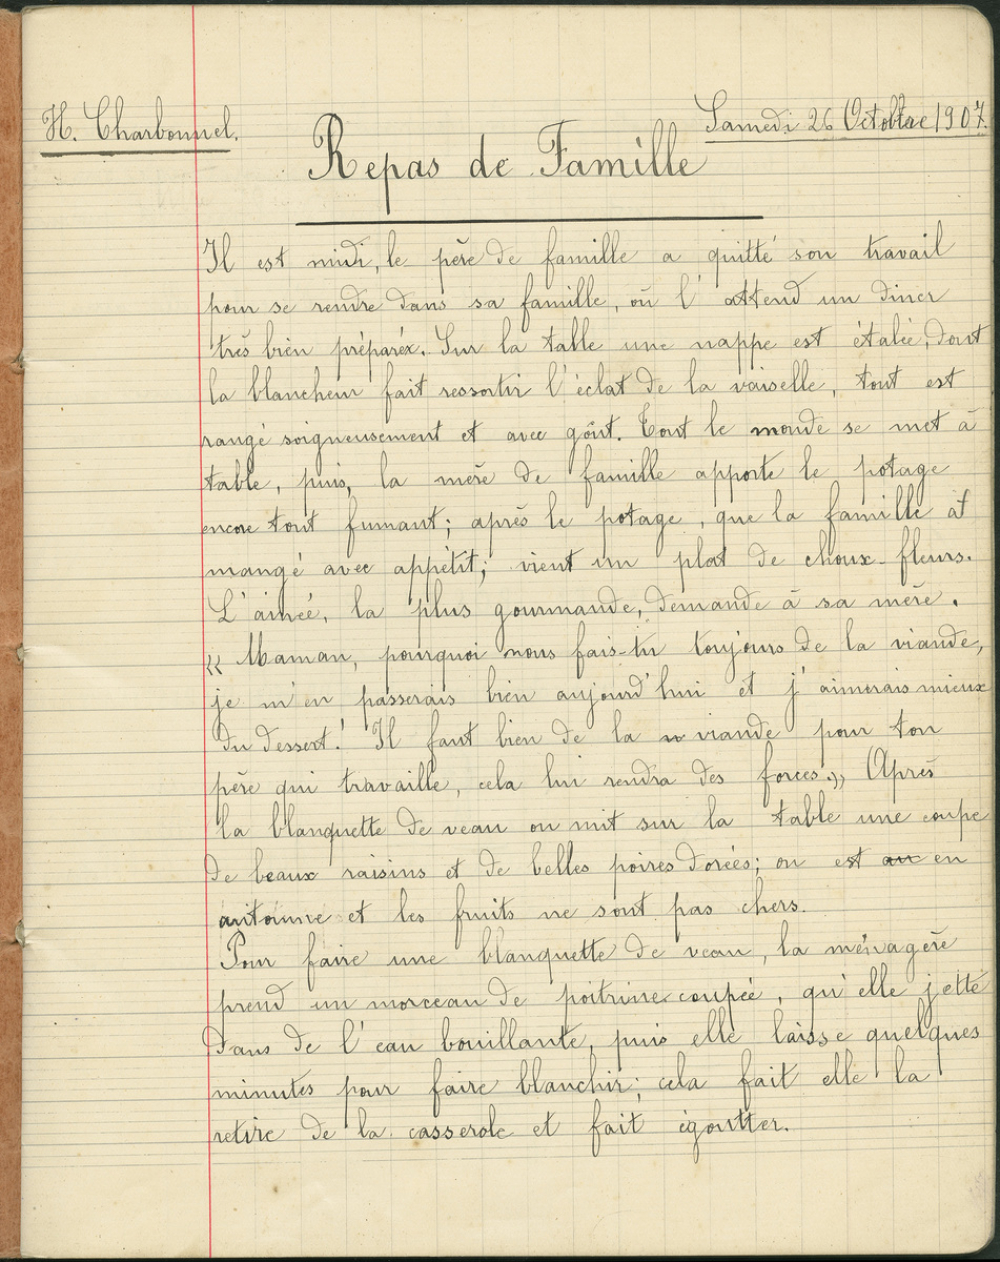 H. Charbonnel.
Samedi 26 Octobre 1907.
Repas de Famille
Il est midi, le père de famille a quitté son travail
pour se rendre dans sa famille, où l'attend un diner
très bien préparéx. Sur la table une nappe est étalée, dont
la blancheur fait ressortir l'éclat de la vaiselle, tout est
rangé soigneusement et avec goût. Tout le monde se met à
table, puis, la mère de famille apporte le potage
encore tout fumant; après le potage, que la famille at
mangé avec appétit; vient un plat de choux-fleurs.
L'ainée, la plus gourmande, demande à sa mère.
« Maman, pourquoi nous fais-tu toujours de la viande,
je m'en passerais bien aujourd'hui et j'aimerais mieux
du dessert! Il faut bien de la v viande pour ton
père qui travaille, cela lui rendra des forces.» Après
la blanquette de veau on mit sur la table une coupe
de beaux raisins et de belles poires dorées; on est au en
automne et les fruits ne sont pas chers.
Pour faire une blanquette de veau, la ménagère
prend un morceau de poitrine coupée, qu'elle jette
dans de l'eau bouillante, puis elle laisse quelques
minutes pour faire blanchir; cela fait elle la
retire de la casserole et fait égoutter.